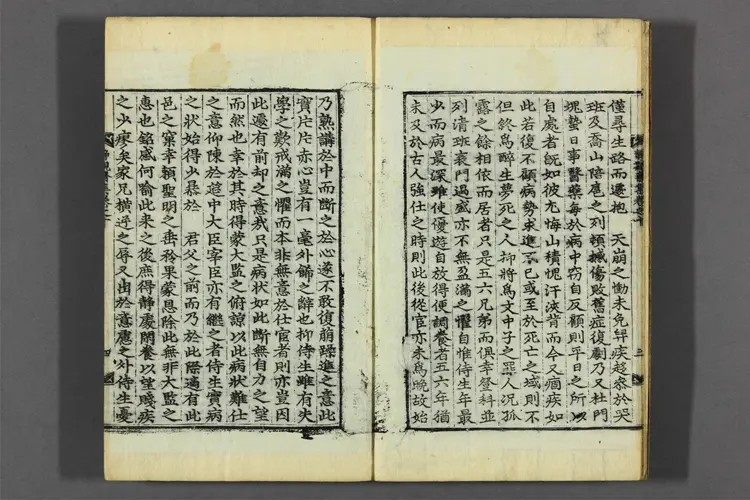 僅尋生路而還抱　天崩之慟未免舁疾趍叅於哭
班及喬山陪扈之列頓撼傷敗舊症復劇乃又杜門
塊蟄日事醫藥每於病中窃自反顧則平日之所以
自處者旣如彼尤悔山積愧汗浹背而今又痼疾如
此若復不顧病勢求進不已或至於死亡之域則不
但終爲醉生夢死之人抑將爲文中子之罪人况孤
露之餘相依而居者只是五六兄弟而俱幸登科並
列清班衰門過盛亦不無盈滿之懼自惟侍生年最
少而病最深雖使優遊自放得便調養者五六年猶
未及於古人強仕之時則此後從宦亦未爲晩故始
乃熟講於中而斷之於心遂不敢復萌躁進之意此
實片片赤心豈有一毫外飾之辭也抑侍生雖有失
學之歎戒滿之懼而本非無意於仕宦者則亦豈因
此遽有前却之意哉只是病狀如此斷無自力之望
而然也幸於其時得蒙大監之俯諒以此病狀難仕
之意仰陳於筵中大臣宰臣亦有繼之者侍生實病
之狀始得少暴於　君父之前而乃於此際適有此
邑之窠幸賴聖明之垂矜果蒙恩除此無非大監之
惠也銘感何喻此来之後庶得静處閒養以望賤疾
之少瘳矣家兄横逆之辱又出於意慮之外侍生憂